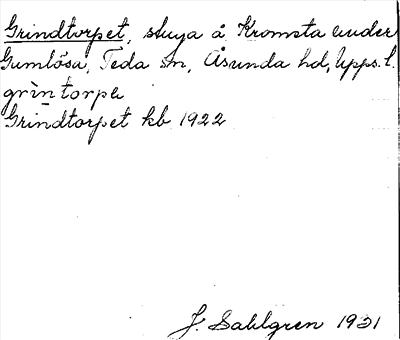 Grindtorpet, stuga å Kromsta under
Gumlösa, Teda sn, Åsunda hd, Upps. l.
grìntorpe
Grindtorpet kb 1922
J. Sahlgren 1931